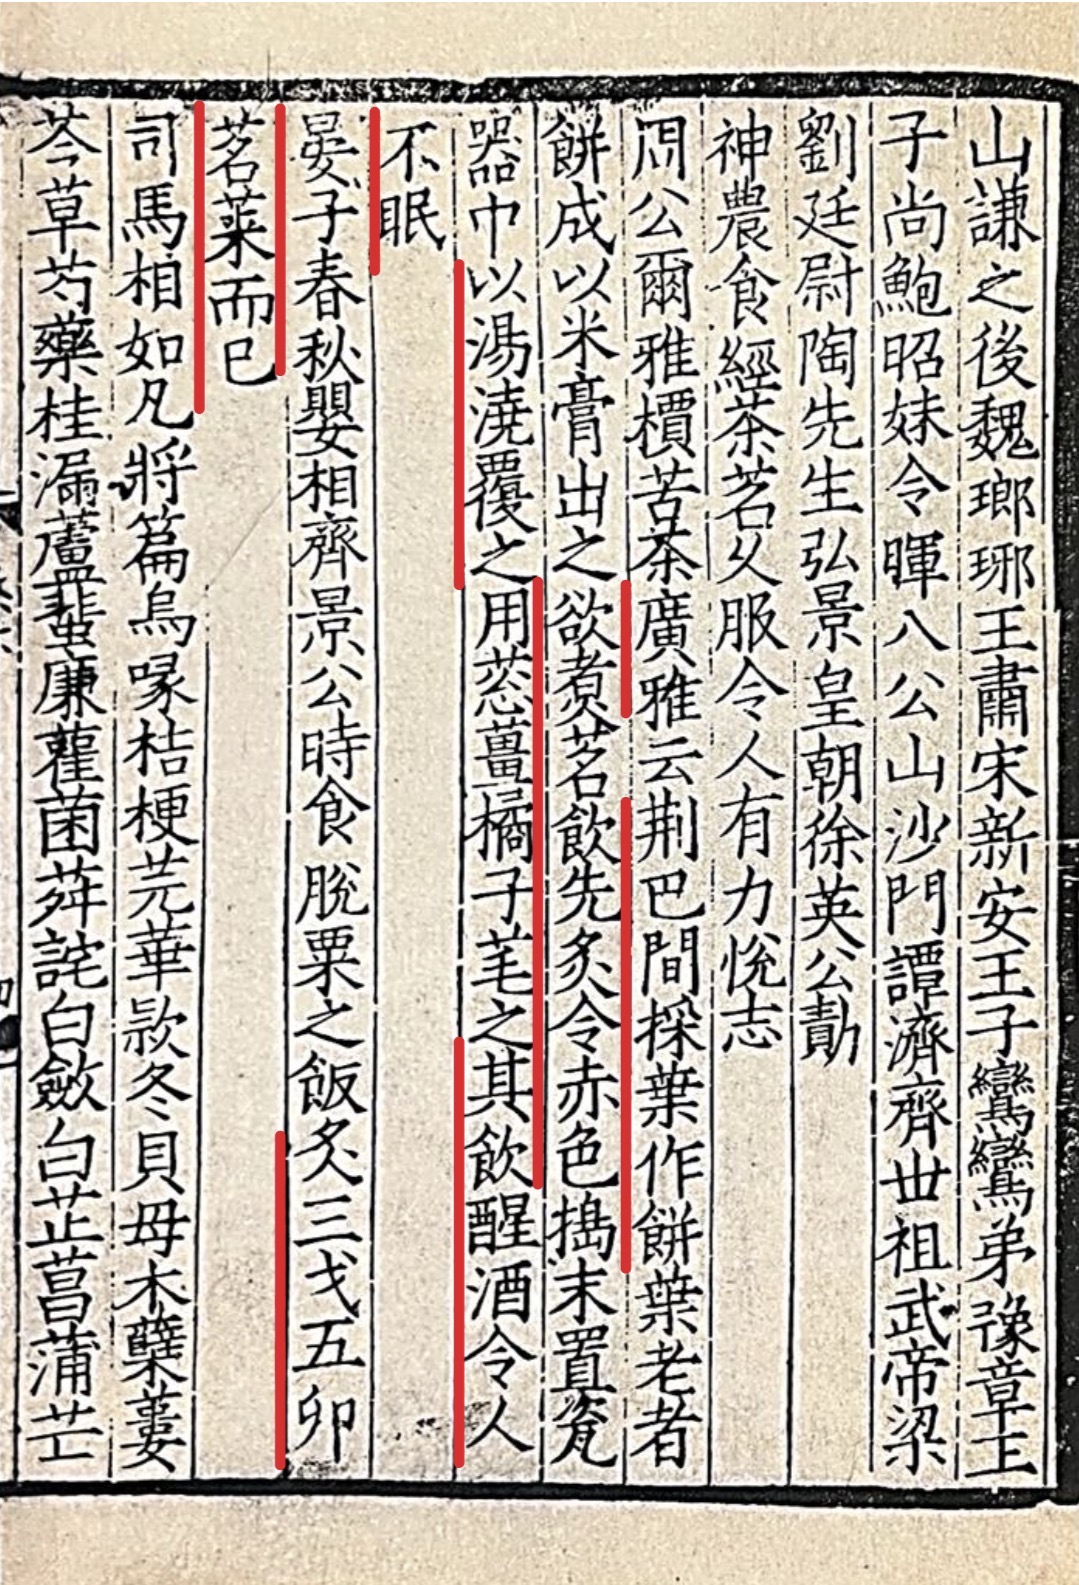 山謙之後魏瑯琊王肅宋新安王子鸞鸞弟豫章王
子尚鮑昭妹令暉八公山沙門譚濟齊世祖武帝梁
劉廷尉陶先生弘景皇朝徐英公勣
神農食經茶茗乆服令人有力悅志
周公爾雅檟苦茶廣雅云荆巴間採葉作餅葉老者
餅成以米膏出之欲煑茗飲先炙令赤色搗末置瓷
器巾以湯澆覆之用葱薑橘子芼之其飲醒酒令人
不眠
晏子春秋嬰相齊景公時食脫粟之飯炙三戈五卯
茗菜而巳
司馬相如凡將篇烏喙桔梗芫華款冬貝母木蘗蔞
芩草芍藥桂漏蘆蜚廉雚菌荈詫白斂白芷菖蒲芒